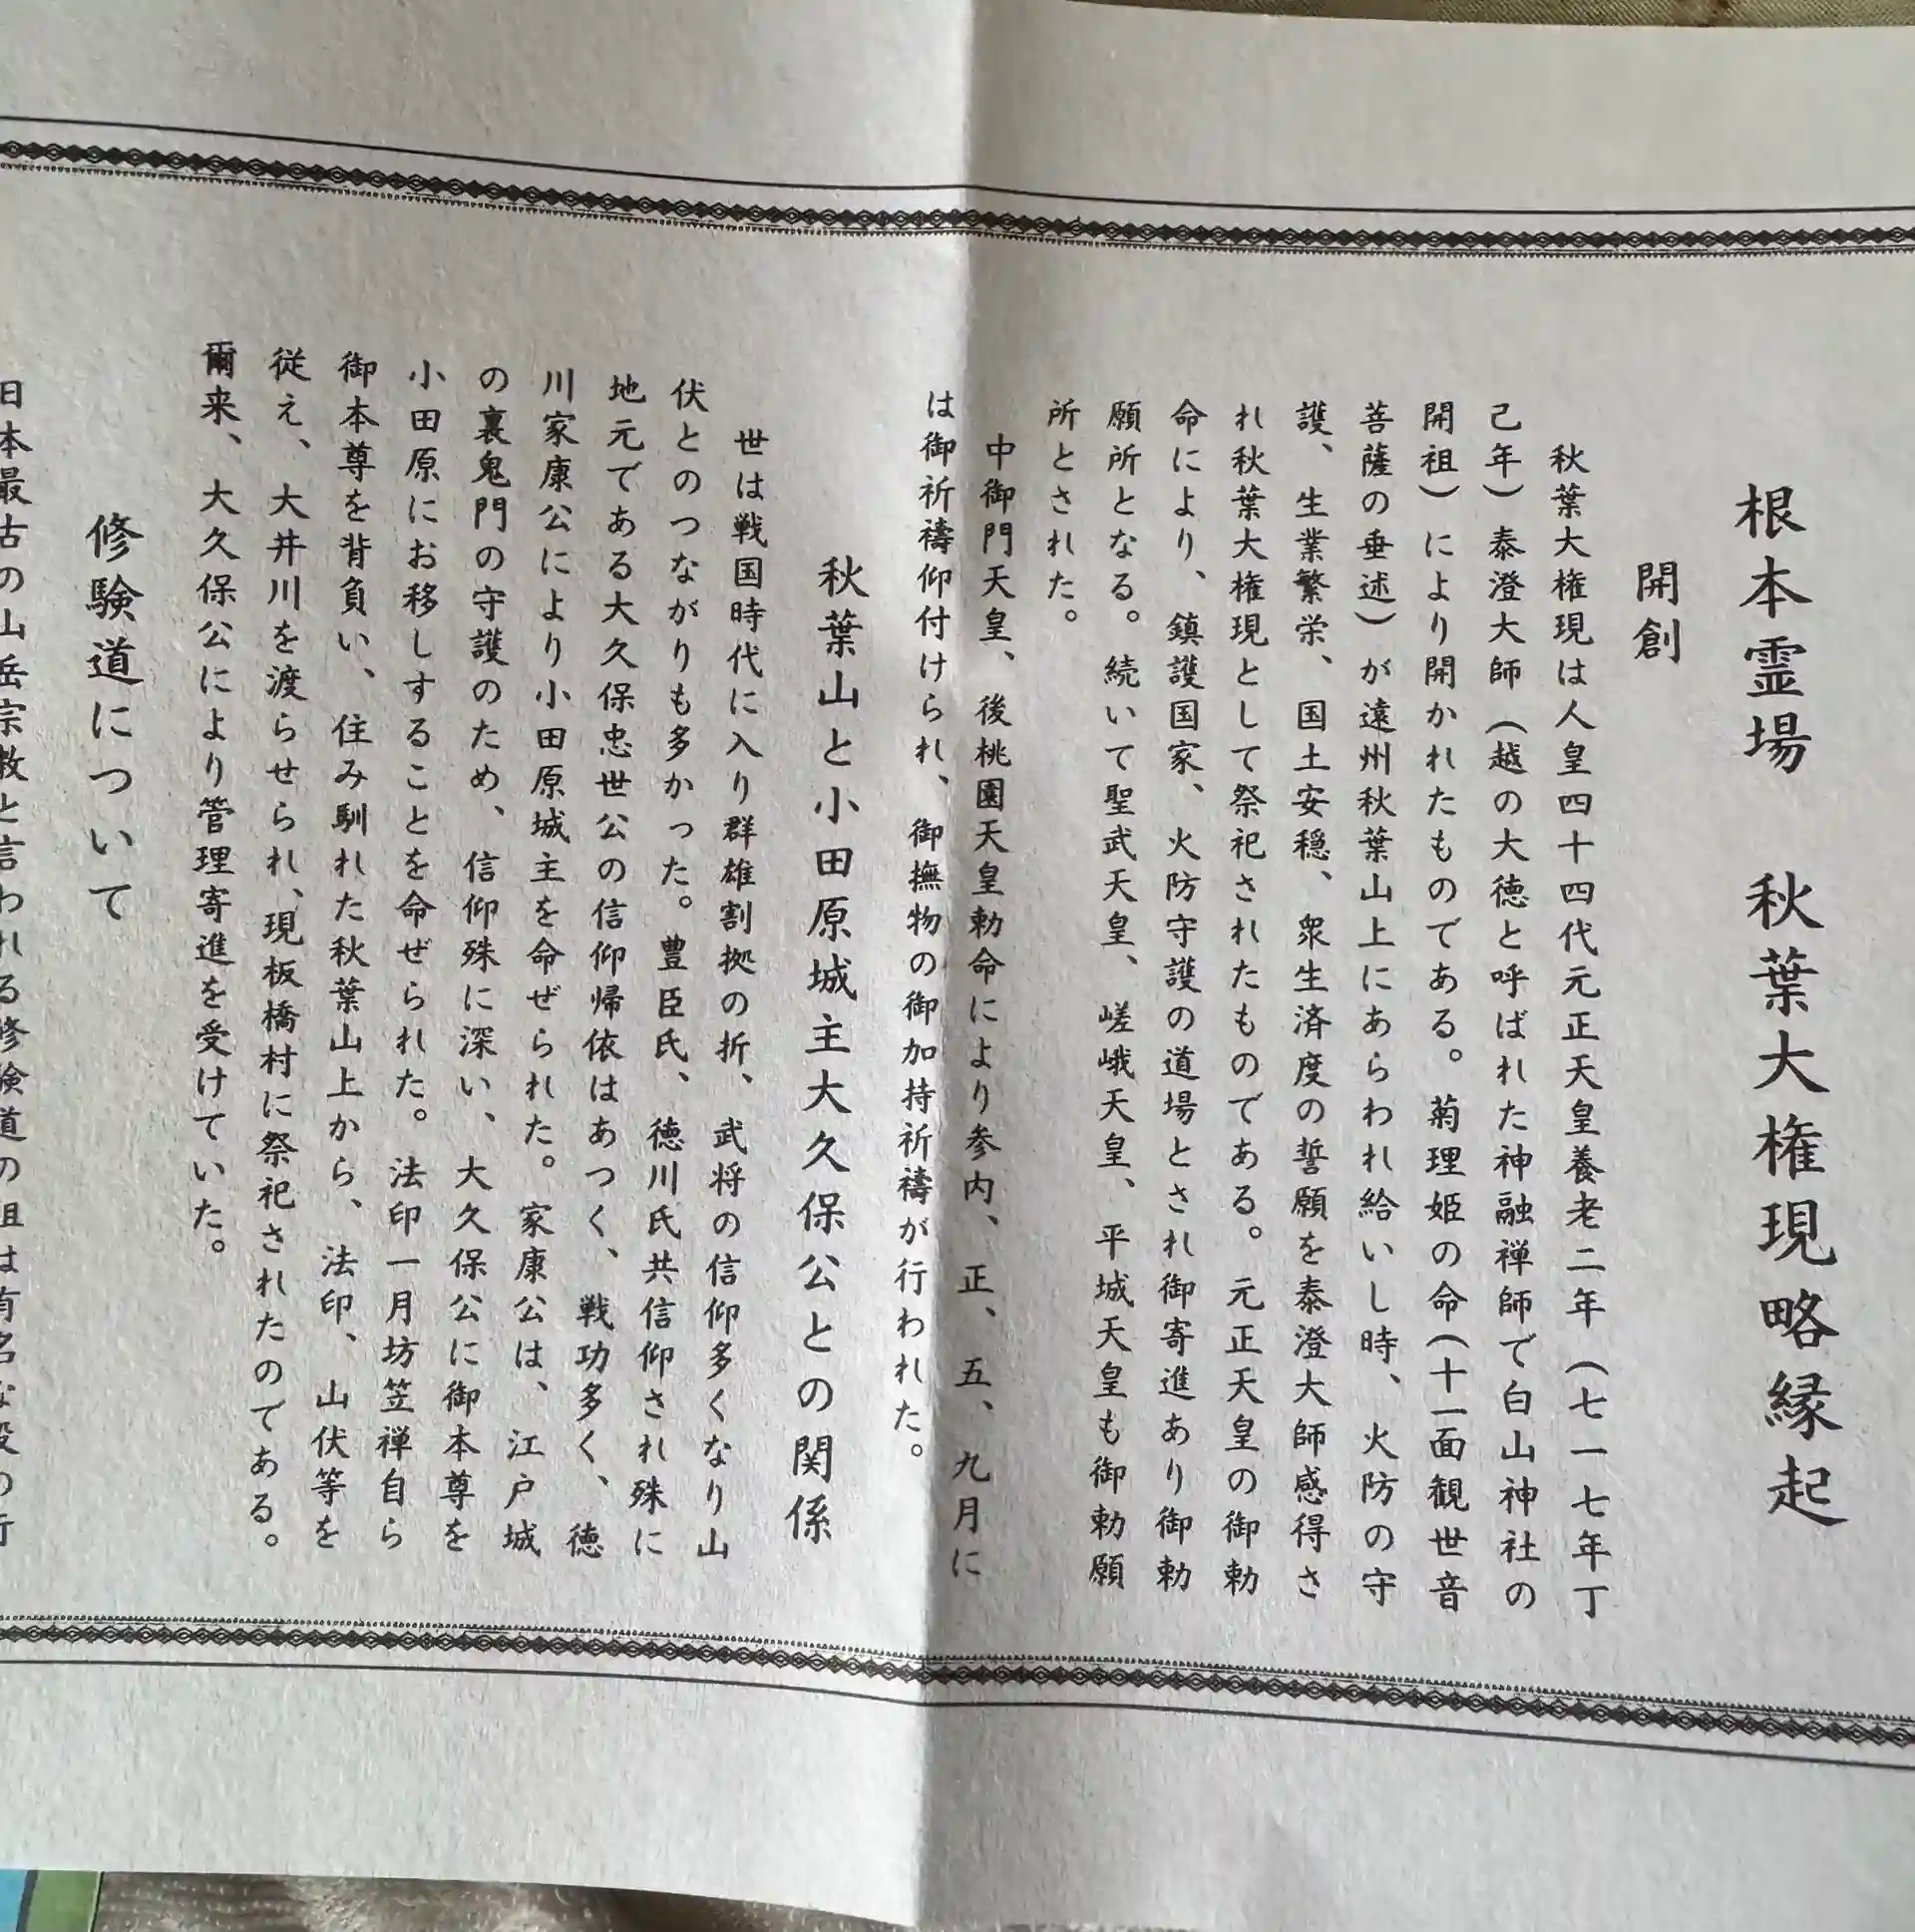 根本霊場　秋葉大権現略縁起
開創
秋葉大権現は人皇四十四代元正天皇養老二年（七一七年丁
己年）泰澄大師（越の大徳と呼ばれた神融禅師で白山神社の
開祖）により開かれたものである。菊理姫の命（十一面観世音
菩薩の垂述）が遠州秋葉山上にあらわれ給いし時、火防の守
護、生業繁栄、国土安穏、衆生済度の誓願を泰澄大師感得さ
れ秋葉大権現として祭祀されたものである。元正天皇の御勅
命により、鎮護国家、火防守護の道場とされ御寄進あり御勅
願所となる。続いて聖武天皇、嵯峨天皇、平城天皇も御勅願
所とされた。
中御門天皇、後桃園天皇勅命により参内、正、五、九月に
は御祈禱仰付けられ、御撫物の御加持祈禱が行われた。
秋葉山と小田原城主大久保公との関係
世は戦国時代に入り群雄割拠の折、武将の信仰多くなり山
伏とのつながりも多かった。豊臣氏、徳川氏共信仰され殊に
地元である大久保忠世公の信仰帰依はあつく、戦功多く、徳
川家康公により小田原城主を命ぜられた。家康公は、江戸城
の裏鬼門の守護のため、信仰殊に深い、大久保公に御本尊を
小田原にお移しすることを命ぜられた。法印一月坊笠禅自ら
御本尊を背負い、住み馴れた秋葉山上から、法印、山伏等を
従え、大井川を渡らせられ、現板橋村に祭祀されたのである。
爾来、大久保公により管理寄進を受けていた。
修験道について
日本最古の山岳宗教と言われる修験道の祖は有名な役の行